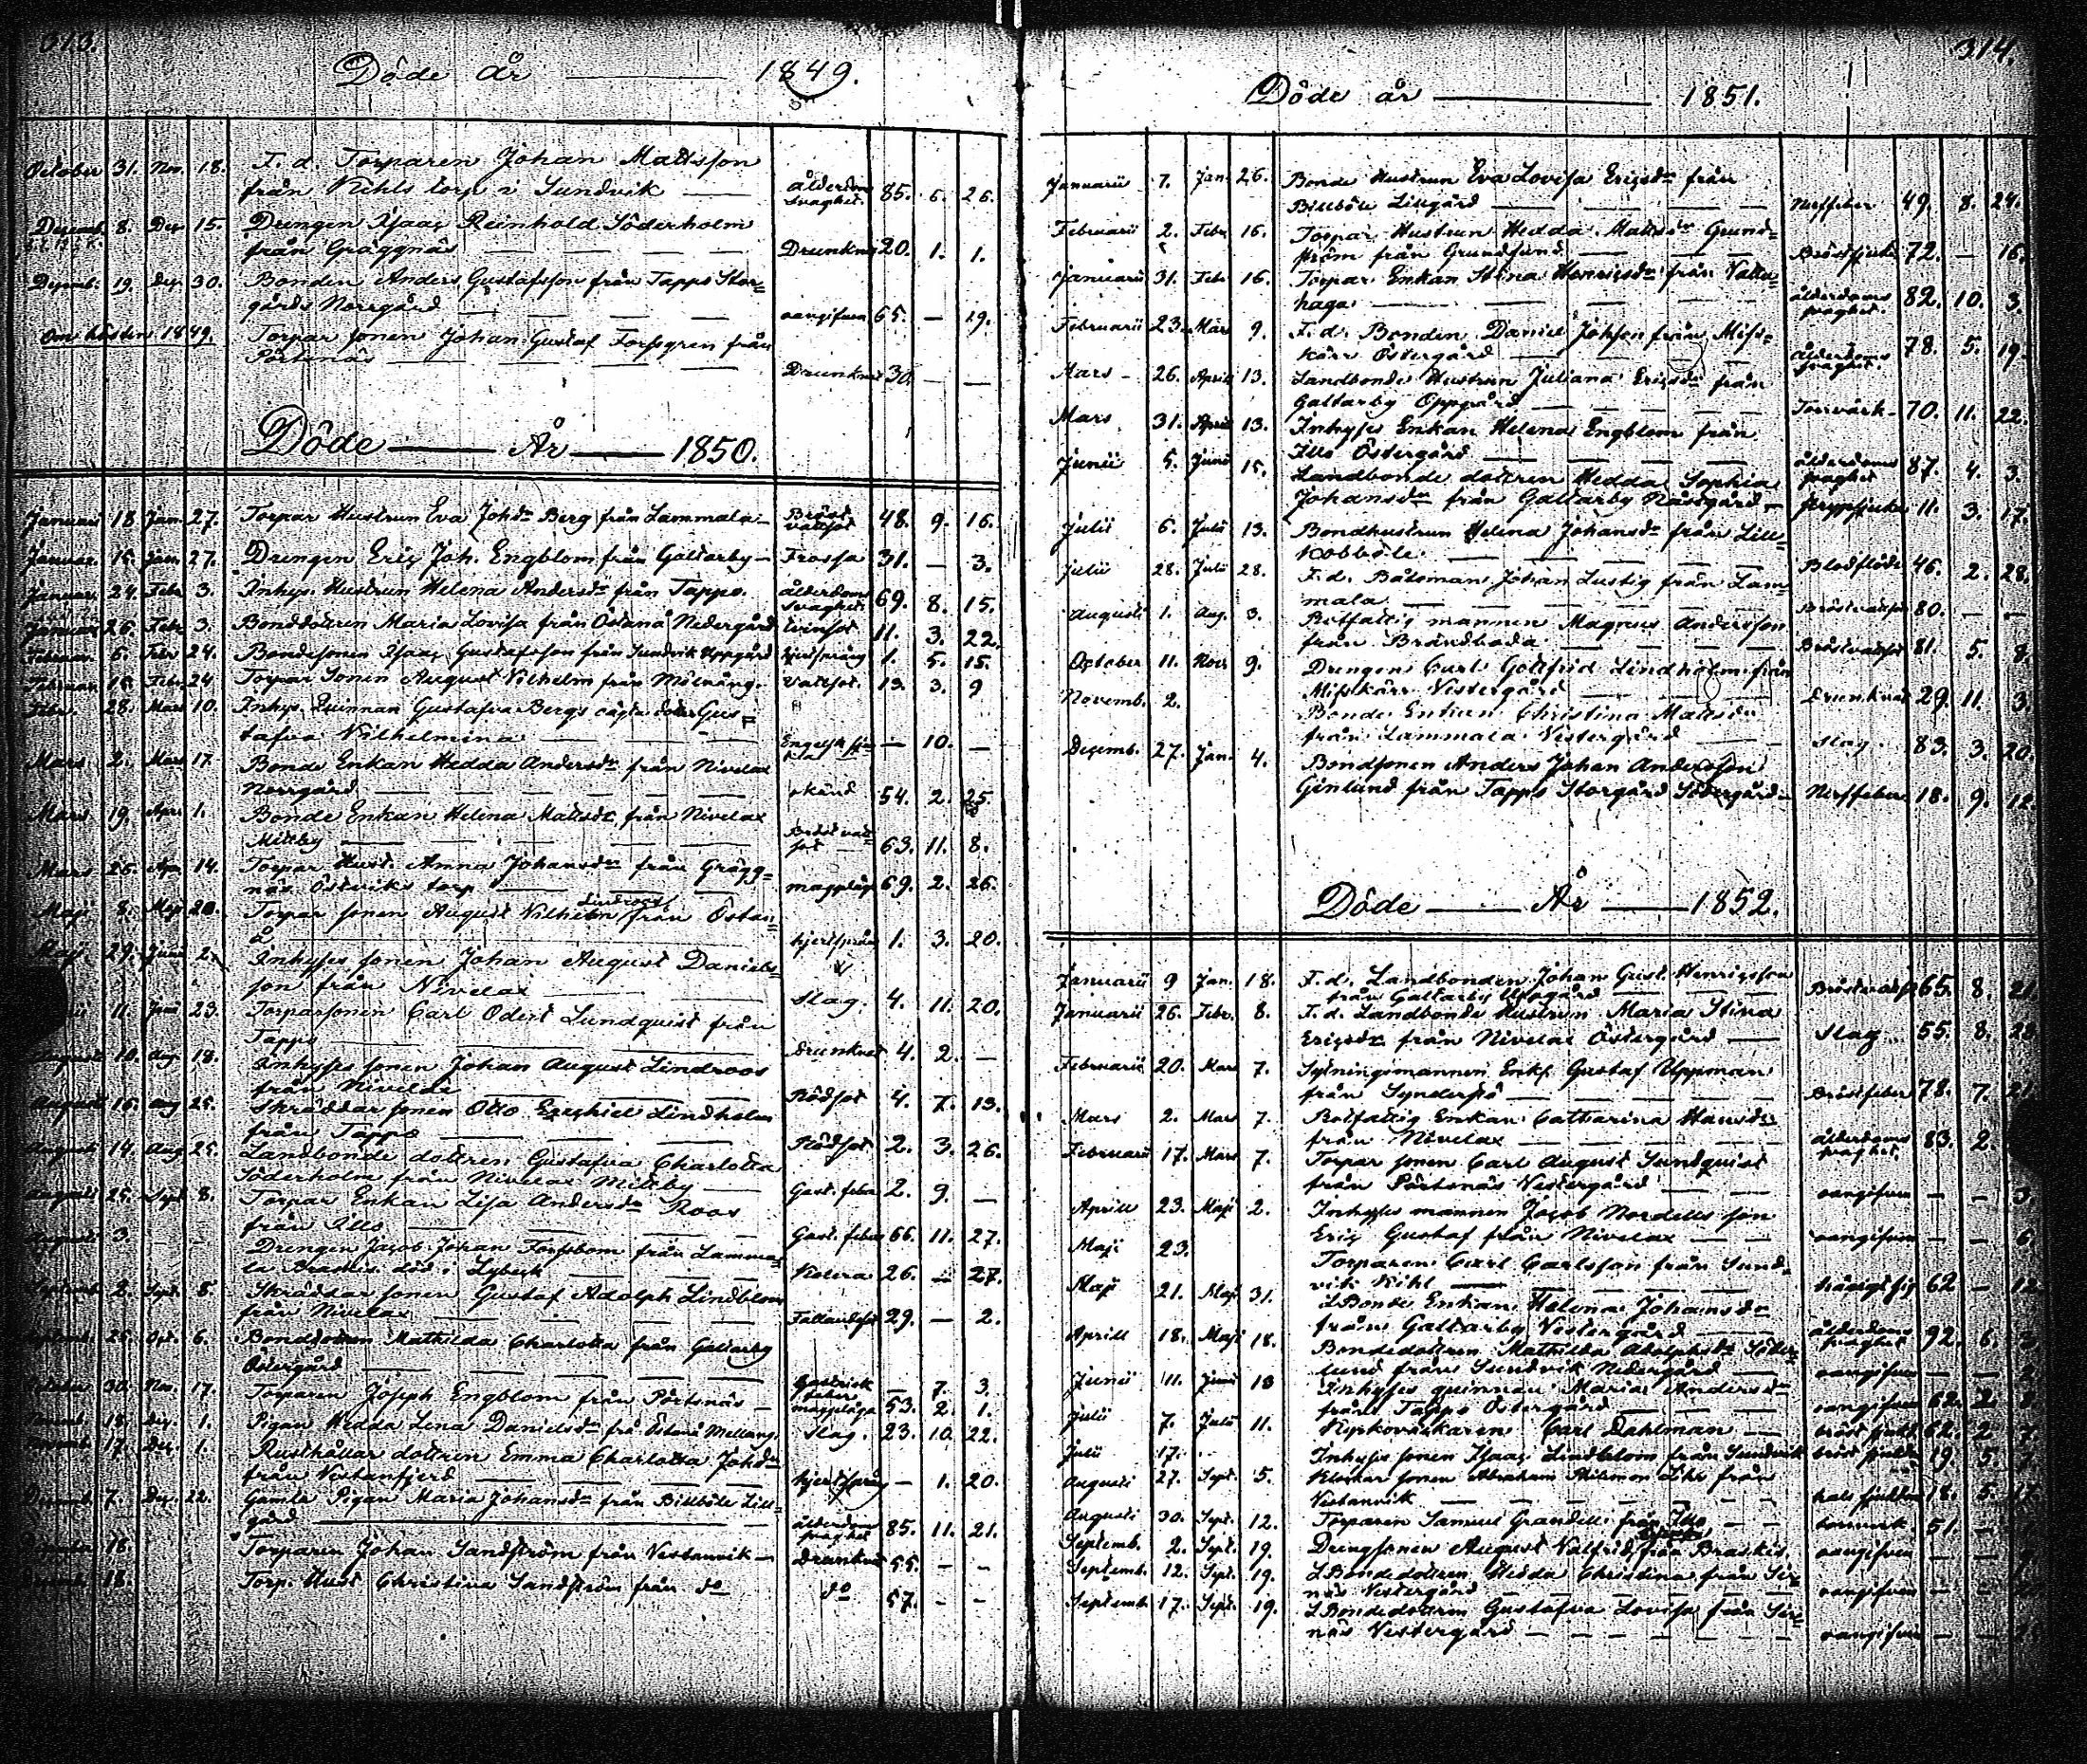 313.
Döde år 1849.
October 31. Nov. 18. F. d. Torparen Johan Mattsson
från Kihls torp i Sundvik ålderdoms svaghet. 85. 6. 26.
Decemb. 8. Dec. 15. Drengen Isaac Reinhold Söderholm
från Gräggnäs Drunknat 20. 1. 1.
Decemb. 19. Dec. 30. Bonden Anders Gustafsson från Tappo Stor=
gårds Norrgård oangifven 65. — 19.
Om hösten 1849. Torpar sonen Johan Gustaf Forssgren från
Pörtsnäs Drunknat 30. — —
Döde År 1850.
Januari 18 Jan. 27. Torpar Hustrun Eva Johsdr Berg från Lammala Bröst vattsot 48. 9. 16.
Januar. 15. Jan. 27. Drengen Eric Joh. Engblom från Galtarby Frossa 31. — 3.
Januar. 24. Febr. 3. Inhys. Hustrun Helena Andersdr från Tappo. ålderdoms svaghet. 69. 8. 15.
Januar. 26. Febr. 3. Bonddottren Maria Lovisa från Östanå Nedergård 11. 3. 22.
Februar. 6. Febr. 24. Bondesonen Isaac Gustafsson från Sundvik Uppgård hjertsprång 1. 5. 15.
Februar. 15. Febr. 24 Torpar Sonen August Vilhelm från Vattsot. 13. 3. 9
Febr. 28. Mars 10. Inhys. Quinnan Gustafva Bergs oägta dotter Gus=
tafva Vilhelmina Engelsk sju= ka — 10. —
Mars 2. Mars 17. Bonde Enkan Hedda Andersdr från Nivelax
Norrgård okänd 54. 2. 25
Mars 19. Apr. 1. Bonde Enkan Helena Mattsdr från Nivelax
Mellby Bröst vatt= sot 63. 11. 8.
Mars 26. Apr. 14. Torpar Hust. Anna Johansdr från Grägg=
näs Östviks torp magplåga 69. 2. 26.
Maji 8. Maji 20. Torpar sonen August Vilhelm Lindroos från Östan=
å hjertsprång 1. 3. 20.
Maji 29. Junii 2. Inhyses sonen Johan August Daniels=
son från Nivelax Slag. 4. 11. 20.
11. Junii 23. Torparsonen Carl Odert Lundquist från
Tappo Drunknat 4. 2. —
Augusti 10. Aug. 18. Inhyses sonen Johan August Lindroos
från Nivelax Rödsot 4. 7. 13.
Augusti 16. Aug. 25. Skräddar sonen Otto Ezechiel Lindholm
från Tappo Rödsot 2. 3. 26.
Augusti 14. Aug. 25. Landbonde dottren Gustafva Charlotta
Söderholm från Nivelax Mellby Gast. feber 2. 9. —
Augusti 25. Sept. 8. Torpar Enkan Lisa Andersdr Roos
från Illo Gast. feber 66. 11. 27.
Augusti 3. Drengen Jacob Johan Forssbom från Lamma=
la död i Lybeck Kolera 26. — 27.
Septemb. 2. Sept. 8. Skräddar sonen Gustaf Adolph Lindblom
från Nivelax Fallandesot 29. — 2.
Septemb. 25. Oct. 6. Bonddottren Mathilda Charlotta från Galtarby
Östergård Gastrisk feber — 7. 3.
October 30. Nov. 17. Torparen Joseph Engblom från Pörtsnäs magplåga 53. 2. 1.
Novemb. 18. Dec. 1. Pigan Hedda Lena Danielsdr frå Östanå Mellang. Slag. 23. 10. 22.
Novemb. 17. Dec. 1. Rusthållar dottren Emma Charlotta Johsdr
från Vestanfjerd hjertsprång — 1. 20.
Decemb. 7. Dec. 22. Gamla Pigan Maria Johansdr från Billböle Lill=
gård ålderdoms svaghet 85. 11. 21.
December 18. Torparen Johan Sandström från Vestanvik Drunknat 55. — —
Decemb. 18. Torp. Hust Christina Sandström från do do 57. — —
314.
Döde år 1851.
Januarii 7. Jan. 26. Bonde Hustrun Eva Lovisa Ericsdr från
Billböle Lillgård Nerffeber 49. 8. 24.
Februarii 2. Febr. 16. Torpar Hustrun Hedda Mattsdr Grund=
ström från Grundsund Bröstsjuka 72. — 16.
Januarii 31. Febr. 16. Torpar Enkan Stina Henricsdr från Valla=
haga ålderdoms svaghet. 82. 10. 3.
Februarii 23. Mars 9. F. d. Bonden Daniel Johsson från Miss=
kärr Östergård ålderdoms svaghet. 78. 5. 19.
Mars 26. April 13. Landbonde Hustrun Juliana Ericsdr från
Galtarby Oppgård Torrvärk 70. 11. 22.
Mars 31. April 13. Inhyses Enkan Helena Engblom från
Illo Östergård ålderdoms svaghet 87. 4. 3.
Junii 5. Junii 15. Landbonde dottren Hedda Sophia
Johansdr från Galtarby Näsegård Strypsjuka 11. 3. 17.
Julii 6. Julii 13. Bondhustrun Helena Johansdr från Lill=
kobböle Blodflöde 46. 2. 28.
Julii 28. Julii 28. F. d. Båtsman Johan Lustig från Lam=
mala Bröstvattsot 80. — —
Augusti 1. Aug. 3. Rotfattig mannen Magnus Andersson
från Brändboda Bröstvattsot 81. 5. 8.
October 11. Nov. 9. Drengen Carl Gottfrid Lindholm från
Misskärr Vestergård Drunknat 29. 11. 3.
Novemb. 2. Bonde Enkan Christina Mattsdr
från Lammala Vestergård Slag. 83. 3. 20.
Decemb. 27. Jan. 4. Bondsonen Anders Johan Andersson
Ginlund från Tappo Storgård Södergård Nerffeber 18. 9. 12.
Döde År 1852.
Januarii 9 Jan. 18. F. d. Landbonden Johan Gust. Henricsson
från Galtarby Uppgård Bröstvattsot 65. 8. 21.
Januarii 26. Febr. 8. F. d. Landbonde Hustrun Maria Stina
Ericsdr från Nivelax Östergård Slag 55. 8. 28.
Februarii 20. Mars 7. Sytningsmannen Enkl. Gustaf Uppman
från Synderstö Bröstfeber 78. 7. 21.
Mars 2. Mars 7. Rotfattig Enkan Catharina Hansdr
från Nivelax ålderdoms svaghet 83. 2.
Februarii 17. Mars 7. Torpar sonen Carl August Sundquist
från Pörtsnäs Vestergård oangifven — — 3.
Aprill 23. Maji 2. Inhyses mannen Jacob Nordells son
Eric Gustaf från Nivelax oangifven — — 6.
Maji 23. Torparen Carl Carlsson från Sund=
vik Kihl 62 — 12.
Maji 21. Maji 31. LBonde Enkan Helena Johansdr
från Galtarby Vestergård ålderdoms svaghet 92. 6. 3.
Aprill 18. Maji 18. Bondedottren Mathilda Adolphsdr Söder=
lund från Sundvik Nedergård oangifven — — 2.
Junii 11. Junii 13 Inhyses quinnan Maria Andersdr
från Tappo Östergård oangifven 62. 2. 8.
Julii 7. Julii 11. Kyrkoväktaren Carl Dahlman bröst sjukd. 62. 2 7.
Julii 17. Inhyses sonen Isaac Lindblom från Sundvik bröst sjukdom 19. 5.
Augusti 27. Sept. 5. Klockar sonen Abraham Philemon Lihr från
Vestanvik hals sjukdom 18. 5. 17.
Augusti 30. Sept. 12. Torparen Samuel Grandell från Illo torrverk. 51. —
Septemb. 2. Sept. 19. Drengsonen August Valfrid från Braskis oangifven — —
Septemb. 12. Sept. 19. LBondedottren Hedda Christina från Sir=
näs Vestergård oangifven — —
Septemb. 17. Sept. 19. LBondedottren Gustafva Lovisa från Sir=
näs Vestergård oangifven — —